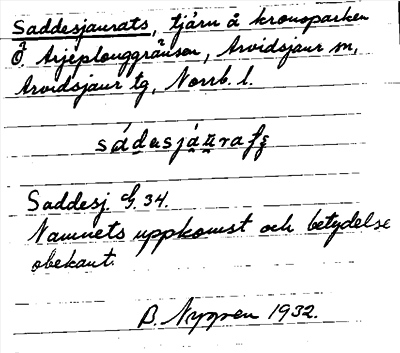 Saddesjaurats, tjärn å kronoparken
Ö. Arjeplouggränsen, Arvidsjaur sn,
Arvidsjaur tg, Norrb. l.
Saddesj. G. 34.
Namnets uppkomst och betydelse
obekant.
B. Nygren 1932.